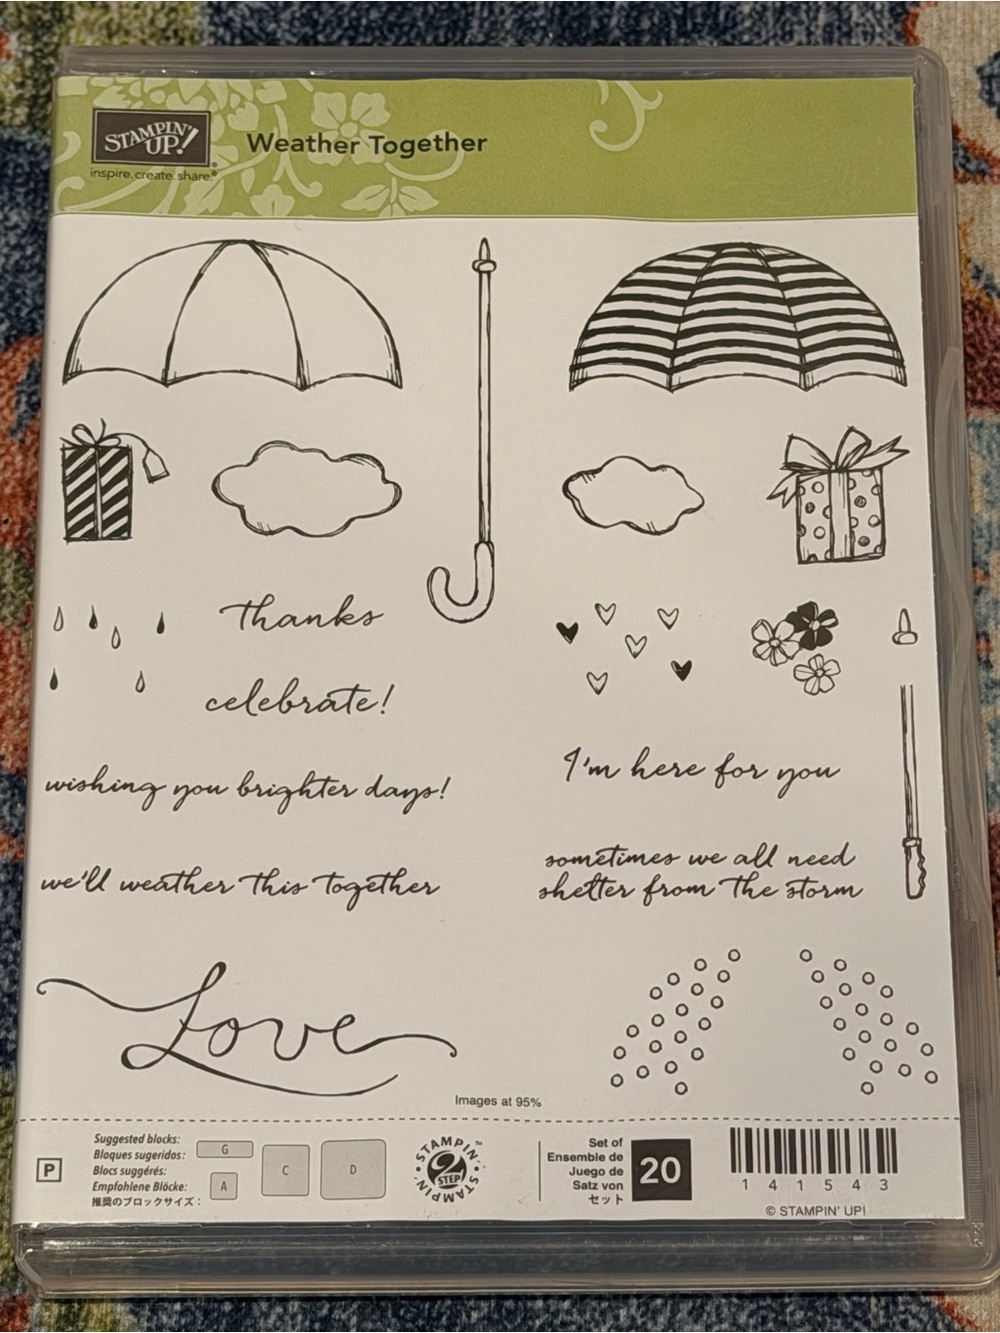 STAMPIN' UP!®
inspire.create.share.®
Weather Together
thanks
celebrate!
wishing you brighter days!
we'll weather this together
Love
I'm here for you
sometimes we all need
shelter from the storm
Images at 95%
P
Suggested blocks:
Bloques sugeridos:
Blocs suggérés:
Empfohlene Blöcke:
推奨のブロックサイズ：
G
A
C
D
STAMPIN' 2 STEP STAMPIN'™
Set of
Ensemble de
Juego de
Satz von
セット
20
141543
© STAMPIN' UP!